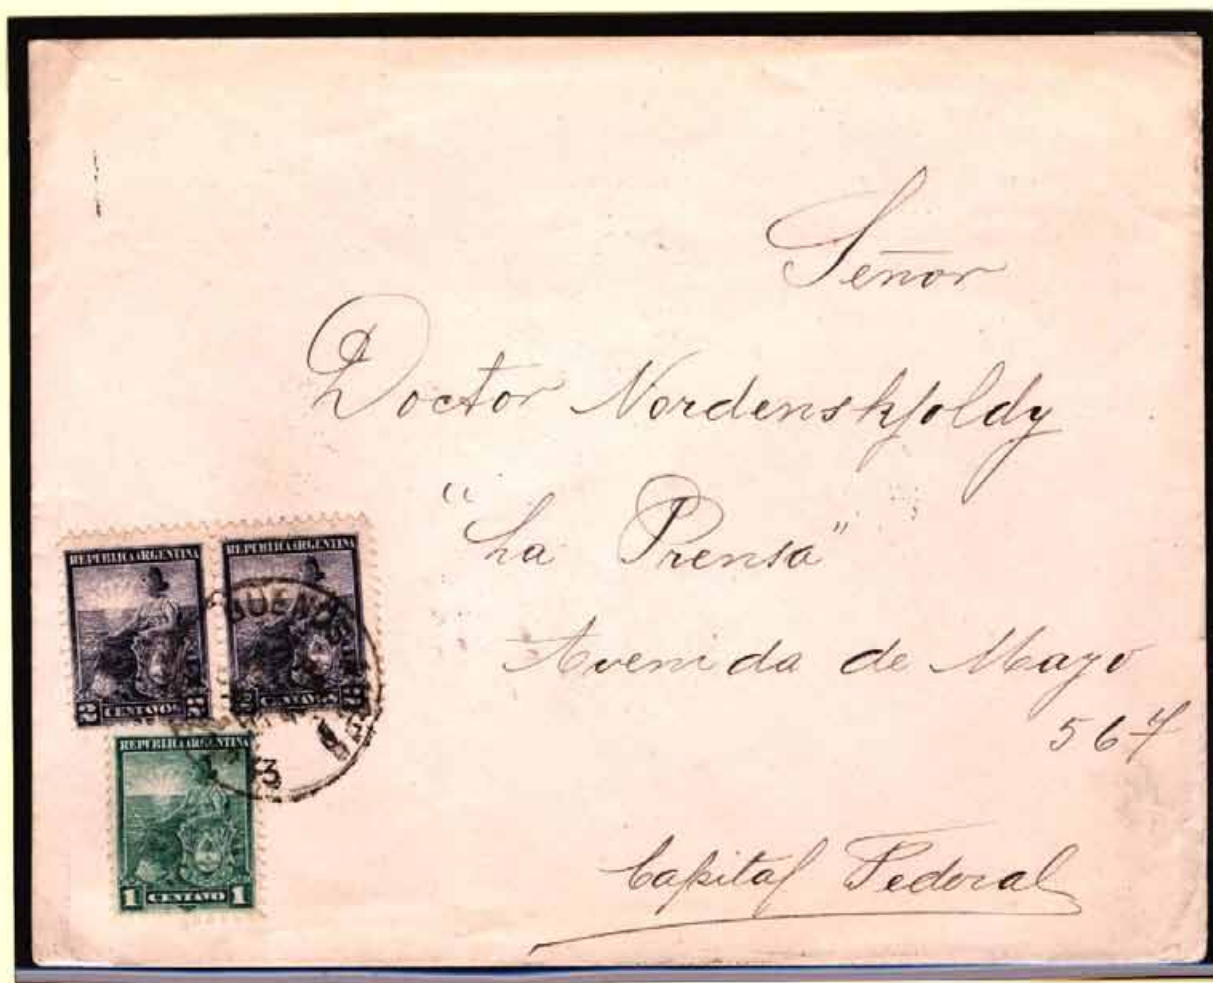 Señor
Doctor Nordenskjoldy
"La Prensa"
Avenida de Mayo
567
Capital Federal
REPUBLICA ARGENTINA
REPUBLICA ARGENTINA
BUENOS
2 CENTAVOS 2
2 CENTAVOS 2
REPUBLICA ARGENTINA
3
1 CENTAVO 1